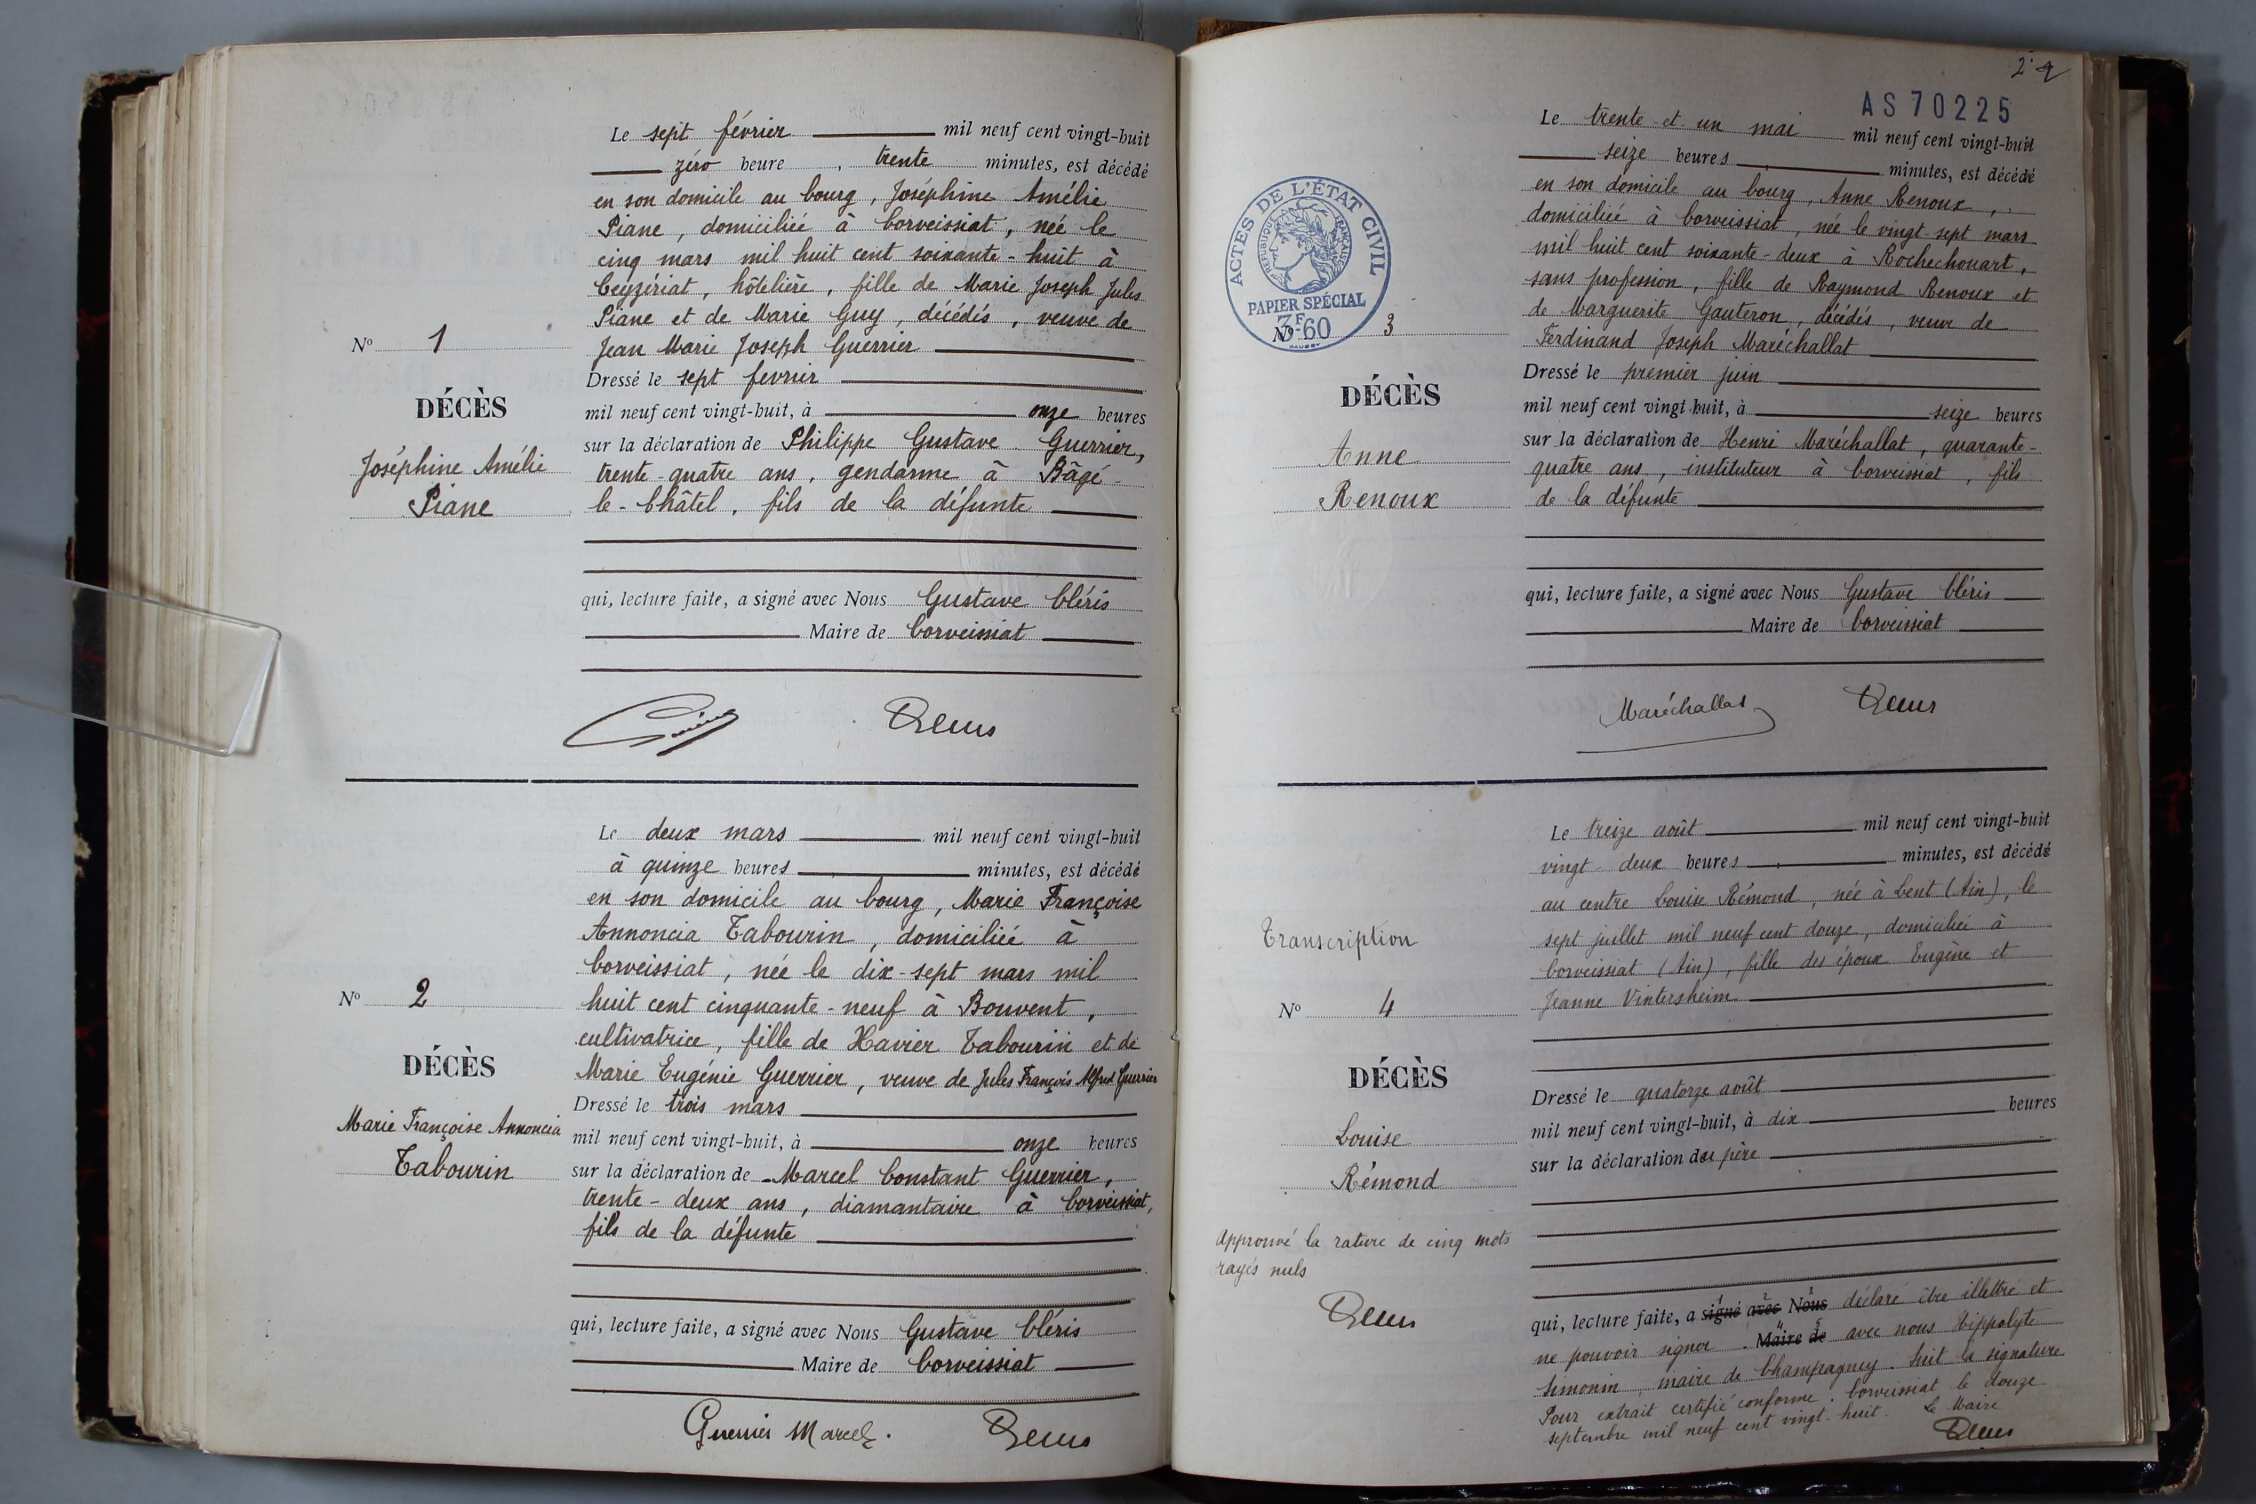 Le sept février mil neuf cent vingt-huit
zéro heure , trente minutes, est décédé
en son domicile au bourg, Joséphine Amélie
Piane, domiciliée à Corveissiat, née le
cinq mars mil huit cent soixante-huit à
Ceyzériat, hôtelière, fille de Marie Joseph Jules
Piane et de Marie Guy, décédés, veuve de
Jean Marie Joseph Guerrier
N° 1
DÉCÈS
Joséphine Amélie
Piane
Dressé le sept février
mil neuf cent vingt-huit, à onze heures
sur la déclaration de Philippe Gustave Guerrier,
trente-quatre ans, gendarme à Bâgé-
le-Châtel, fils de la défunte
qui, lecture faite, a signé avec Nous Gustave Cléris
Maire de Corveissiat
Le deux mars mil neuf cent vingt-huit
à quinze heures , minutes, est décédé
en son domicile au bourg, Marie Françoise
Annoncia Tabourin, domiciliée à
Corveissiat, née le dix-sept mars mil
huit cent cinquante-neuf à Bouvent,
cultivatrice, fille de Xavier Tabourin et de
Marie Eugénie Guerrier, veuve de Jules François Alfred Guerrier
N° 2
DÉCÈS
Marie Françoise Annoncia
Tabourin
Dressé le trois mars
mil neuf cent vingt-huit, à onze heures
sur la déclaration de Marcel Constant Guerrier,
trente-deux ans, diamantaire à Corveissiat,
fils de la défunte
qui, lecture faite, a signé avec Nous Gustave Cléris
Maire de Corveissiat
Guerrier Marcel.
2
AS 70225
Le trente et un mai mil neuf cent vingt-huit
seize heures , minutes, est décédé
en son domicile au bourg, Anne Renoux,
domiciliée à Corveissiat, née le vingt-sept mars
mil huit cent soixante-deux à Rochechouart,
sans profession, fille de Raymond Renoux et
de Marguerite Gauteron, décédés, veuve de
Ferdinand Joseph Maréchallat
ACTES DE L'ÉTAT CIVIL
RÉPUBLIQUE FRANÇAISE
PAPIER SPÉCIAL
3F60
N° 3
DÉCÈS
Anne
Renoux
Dressé le premier juin
mil neuf cent vingt-huit, à seize heures
sur la déclaration de Henri Maréchallat, quarante-
quatre ans, instituteur à Corveissiat, fils
de la défunte
qui, lecture faite, a signé avec Nous Gustave Cléris
Maire de Corveissiat
Maréchallat
Le treize août mil neuf cent vingt-huit
vingt-deux heures , minutes, est décédé
au centre Louise Rémond, née à Lent (Ain), le
sept juillet mil neuf cent douze, domiciliée à
Corveissiat (Ain), fille des époux Eugène et
Jeanne Vintersheim
Transcription
N° 4
DÉCÈS
Louise
Rémond
Dressé le quatorze août
mil neuf cent vingt-huit, à dix heures
sur la déclaration du père
Approuvé la rature de cinq mots
rayés nuls
qui, lecture faite, a signé avec Nous déclaré être illettré et
ne pouvoir signer. Maire de avec nous Hippolyte
Simonin, maire de Champagney. Suit la signature
Pour extrait certifié conforme. Corveissiat le douze
septembre mil neuf cent vingt-huit. Le Maire